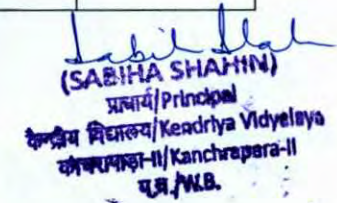 (SABIHA SHAHIN)
प्राचार्य/Principal
केन्द्रीय विद्यालय/Kendriya Vidyelaya
काँचरापाड़ा-II/Kanchrapara-II
प.बं./W.B.